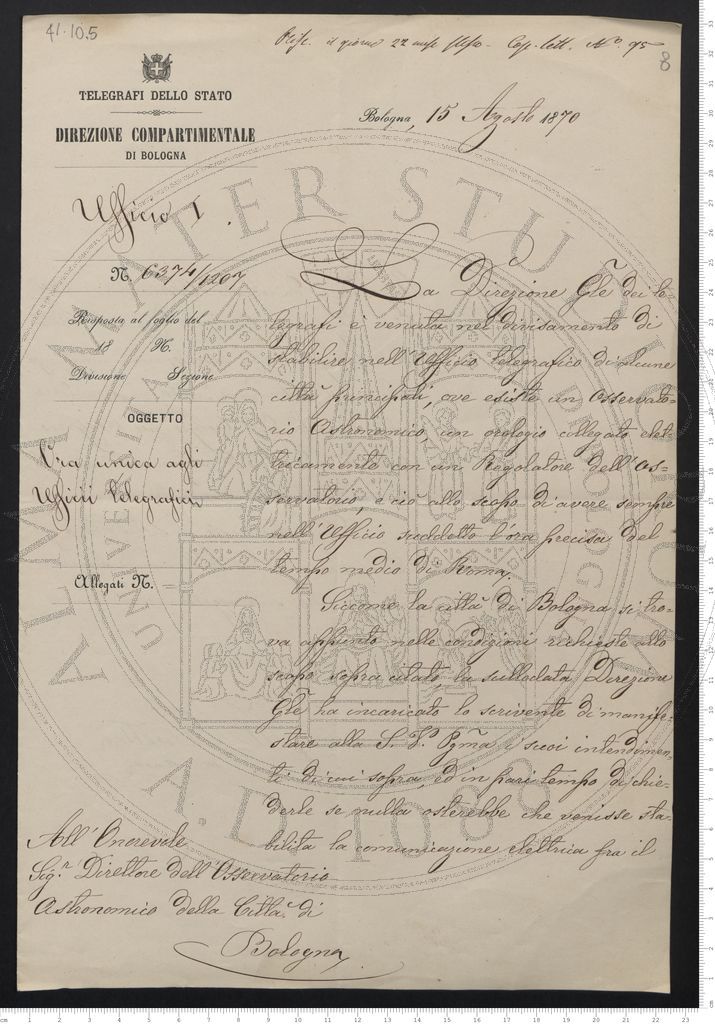 41.10.5
Risp. il giorno 22 mese stesso - Cop. lett. N.º 95
8
TELEGRAFI DELLO STATO
DIREZIONE COMPARTIMENTALE
DI BOLOGNA
Bologna, 15 Agosto 1870
Ufficio I.
N. 6374/1207
Risposta al foglio del
18 N.
Divisione Sezione
OGGETTO
Ora unica agli
Ufficii telegrafici
Allegati N.
La Direzione Gle dei te-
legrafi è venuta nel divisamento di
stabilire nell'Ufficio telegrafico di alcune
città principali, ove esiste un Osservato-
rio Astronomico, un orologio collegato elet-
tricamente con un Regolatore dell'Os-
servatorio, e ciò allo scopo di avere sempre
nell'Ufficio suddetto l'ora precisa del
tempo medio di Roma.
Siccome la città di Bologna si tro-
va appunto nelle condizioni richieste allo
scopo sopra citato, la sullodata Direzione
Gle ha incaricato lo scrivente di manife-
stare alla S. V. Pgma i suoi intendimen-
ti di cui sopra, ed in pari tempo di chie-
derle se nulla osterebbe che venisse sta-
bilita la comunicazione elettrica fra il
All'Onorevole
Sig.r Direttore dell'Osservatorio
Astronomico della Città di
Bologna
ALMA MATER STUDIORUM
A.D. 1088